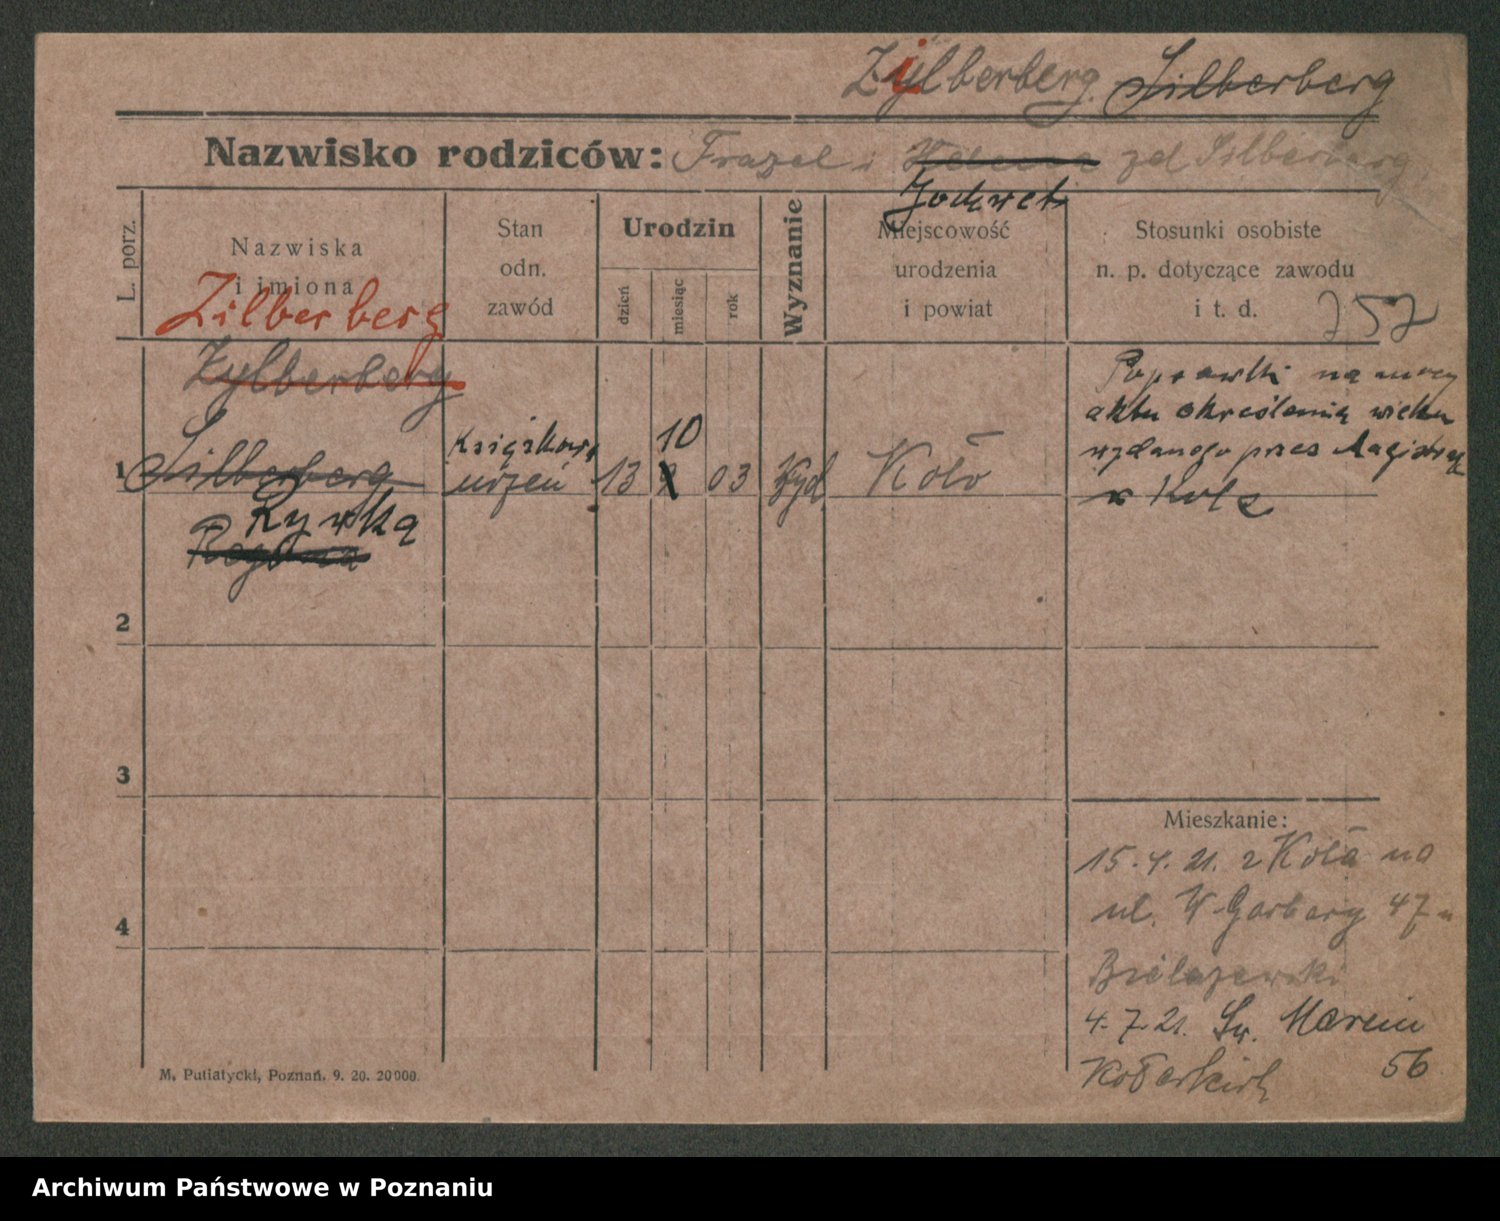 Zylberberg Silberberg
Nazwisko rodziców: Frazel i zd Silberberg
Jochwet
L. porz.
Nazwiska
i imiona
Stan
odn.
zawód
Urodzin
dzień
miesiąc
rok
Wyznanie
Miejscowość
urodzenia
i powiat
Stosunki osobiste
n. p. dotyczące zawodu
i t. d. 757
Zilberberg
Zylberberg
1 Silberberg
Rywka
Regina
10
13 03 żyd Koło
Poprawki na mocy
aktu określenia wieku
wydanego przez Magistrat
w Kole
2
3
4
Mieszkanie:
15.4.21. z Koła na
ul. W Garbary 47
4.7.21. Św. Marcin
56
M. Putiatycki, Poznań. 9. 20. 20000.
Archiwum Państwowe w Poznaniu